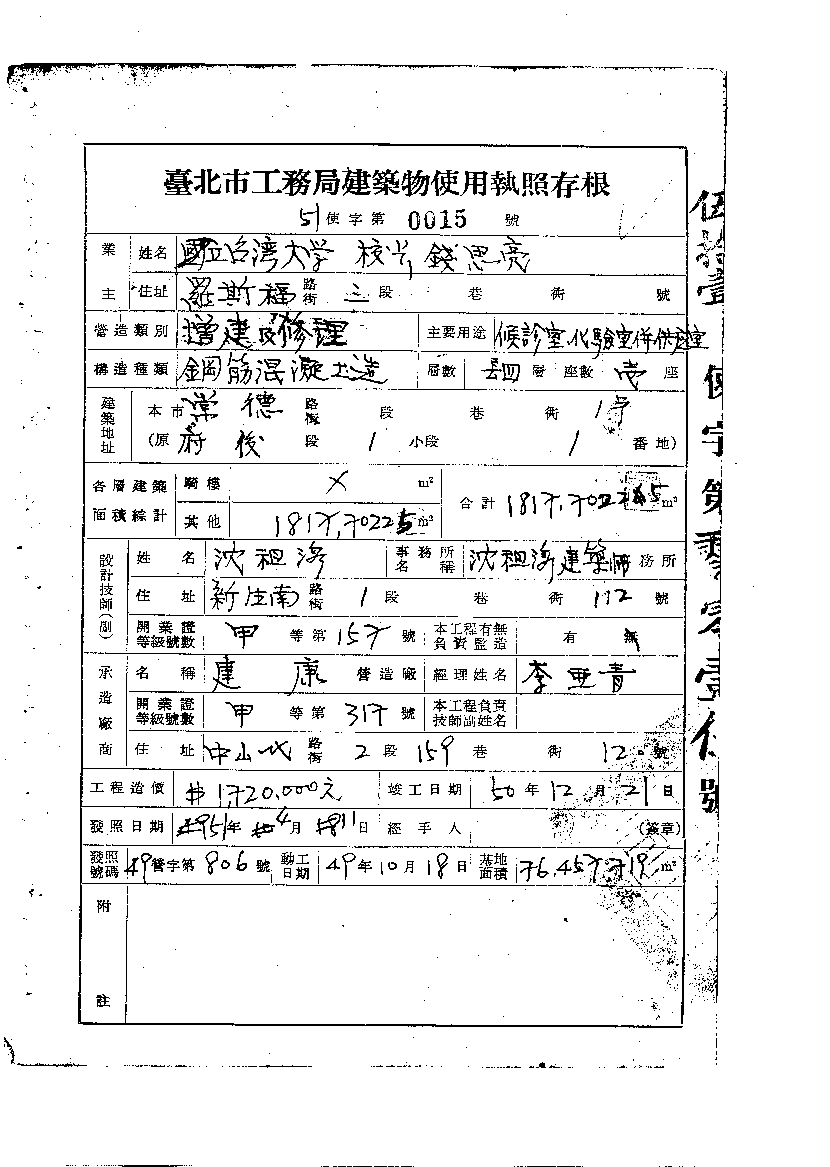 臺北市工務局建築物使用執照存根
51使字第 0015 號
業主 姓名 國立台湾大学 校長 錢思亮
住址 羅斯福 路街 三 段 巷 衖 號
營造類別 增建及修理 主要用途 候診室.化驗室併供應室
構造種類 鋼筋混凝土造 層數 四 層 座數 壱 座
建築地址 本市 常德 路街 段 巷 衖 1号
(原 府後 段 1 小段 1 番地)
各層建築面積綜計 騎樓 × m² 合計 m²
其他 m²
設計技師(副) 姓名 沈祖海 事務所名稱 沈祖海建築師務所
住址 新生南 路街 1 段 巷 衖 112 號
開業證等級號數 甲 等第 號 本工程有無負責監造 有 無
承造廠商 名稱 建康 營造廠 經理姓名 李亜青
開業證等級號數 甲 等第 317 號 本工程負責技師副姓名
住址 中山北 路街 2 段 159 巷 衖 12 號
工程造價 竣工日期 50年12月21日
發照日期 51年4月11日 經手人 (簽章)
發照號碼 49營字第806號 動工日期 49年10月18日 基地面積 m²
附註
伍拾壹使字第零零壹伍號